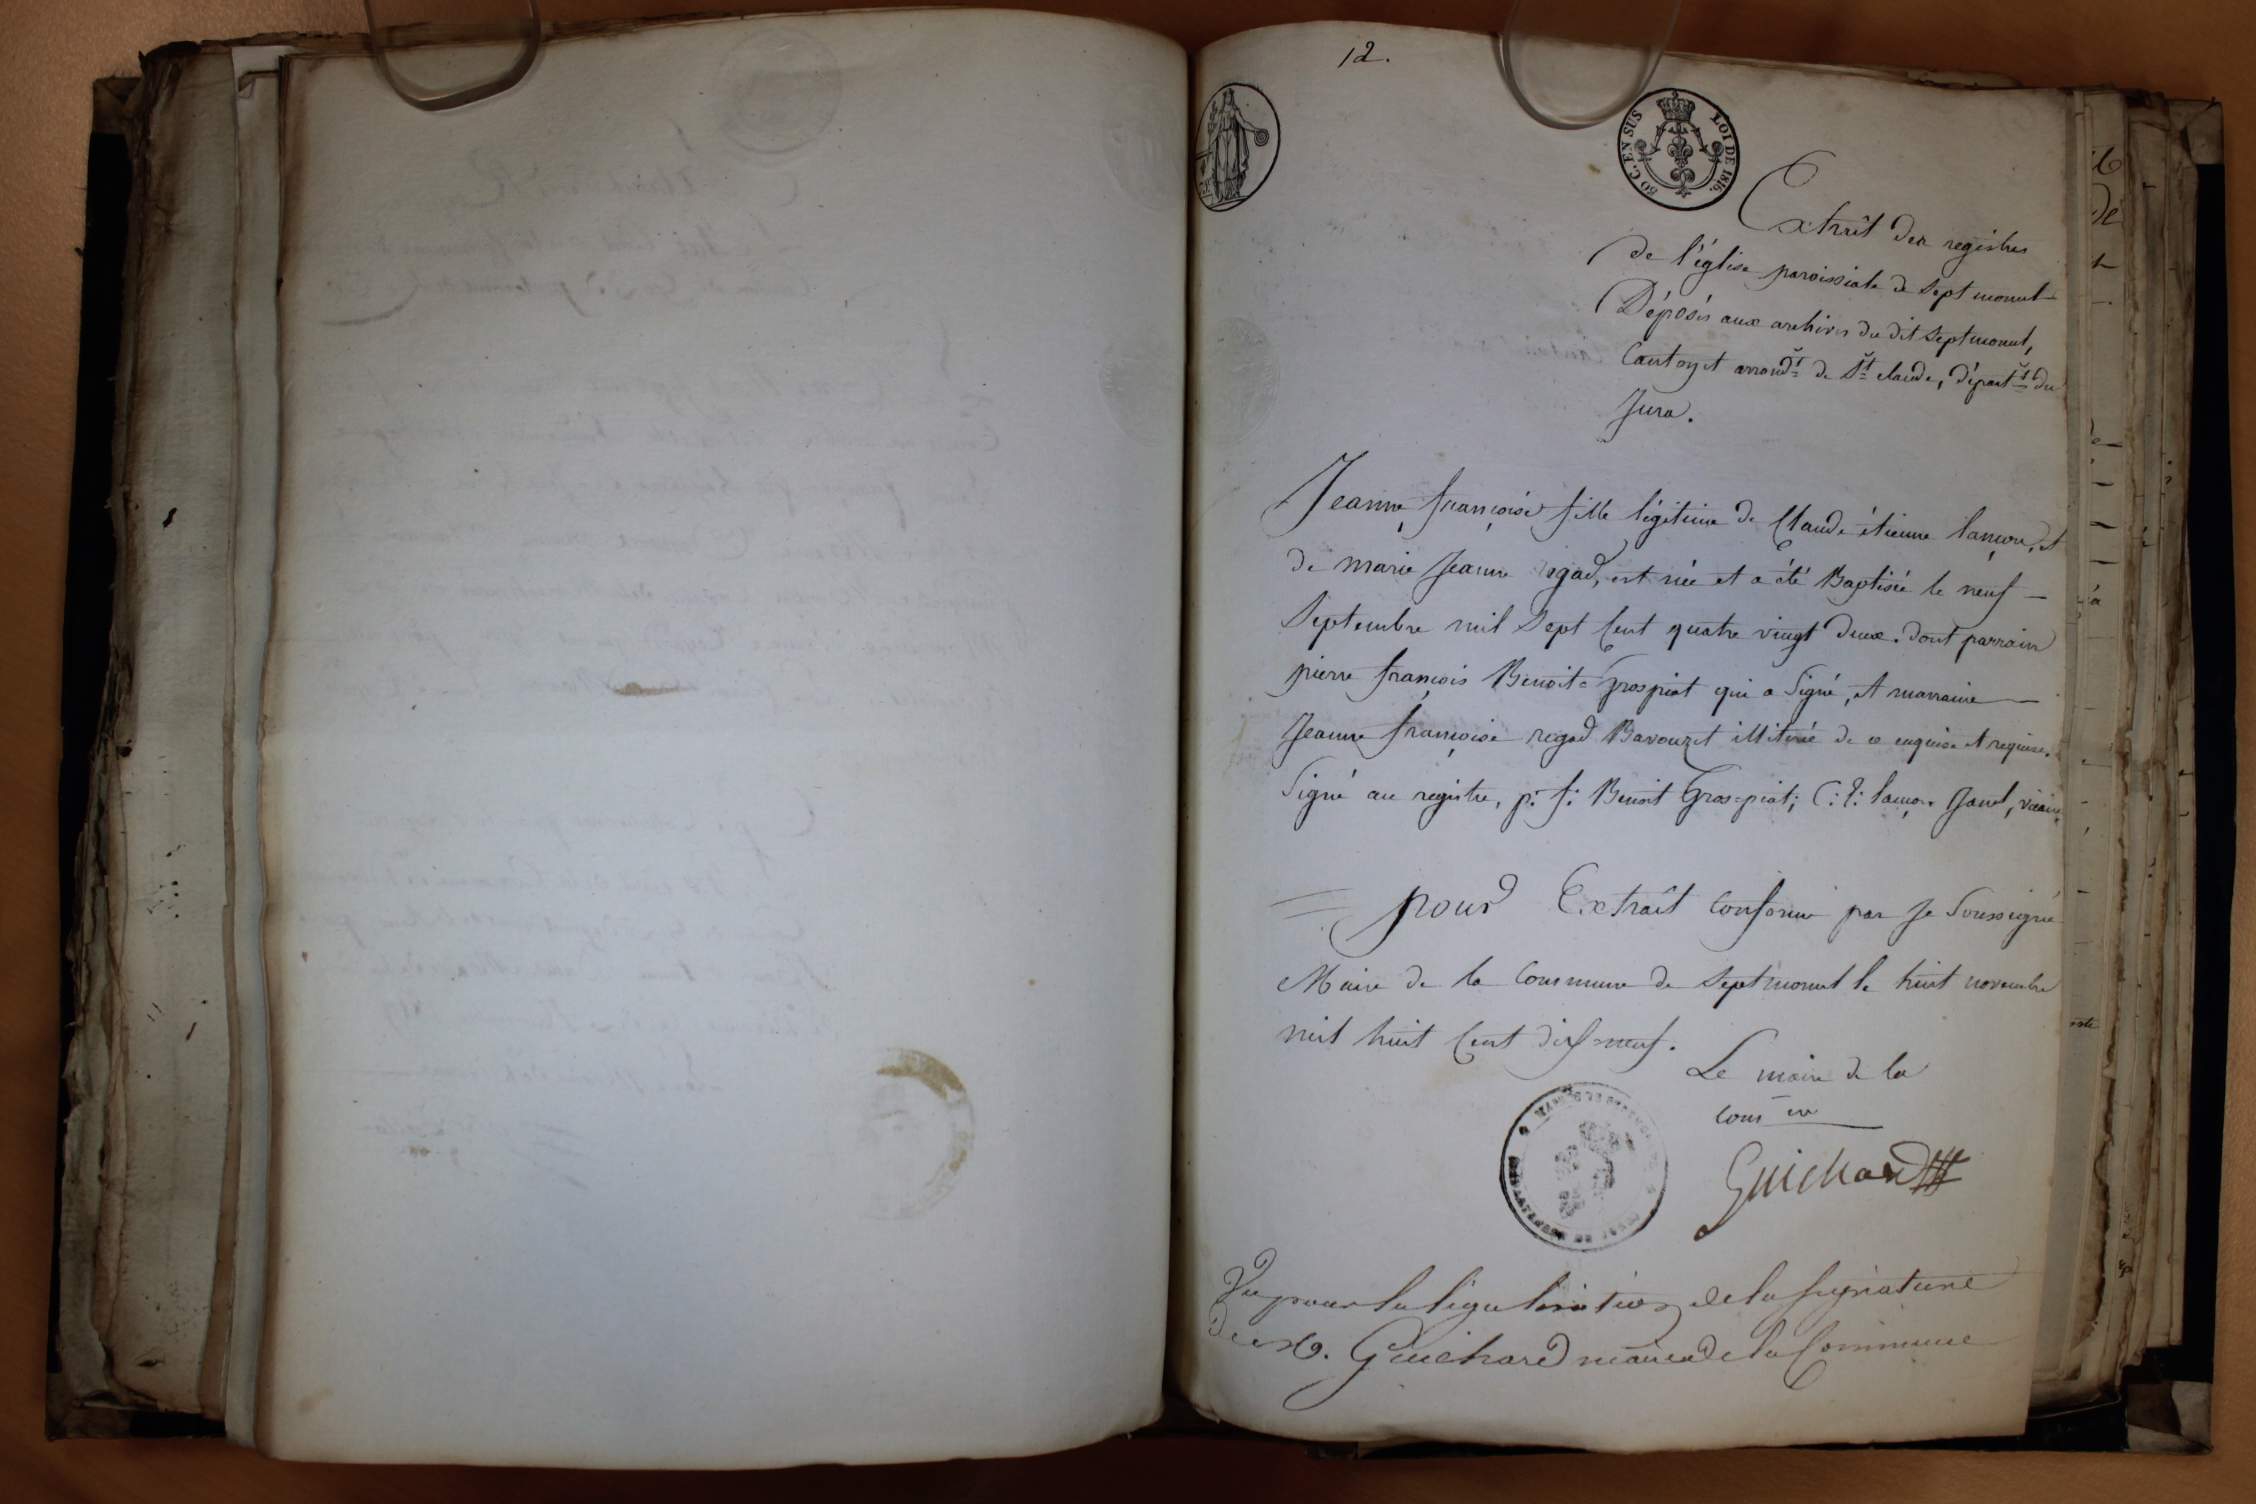 12.
50 C. EN SUS LOI DE 1816.
Extrait des registres
de l'église paroissiale de Septmoncel
Déposés aux archives du dit Septmoncel,
Canton et arrond.t de S.t claude, départ.t du
Jura.
Jeanne françoise fille légitime de Claude étienne lançon, et
de marie Jeanne regad, est née et a été Baptisée le neuf
Septembre mil Sept Cent quatre vingt deux. dont parrain
pierre françois Benoit-Gros piat qui a Signé, et marraine
Jeanne françoise regad Bavouzet illitérée de ce enquise et requise.
Signé au registre, p: f: Benoit Gros-piat; C: E: lançon Janel, vicaire.
pour Extrait Conforme par Je Soussigné
Maire de la Commune de Septmoncel le huit novembre
mil huit Cent dix neuf.
Le maire de la
com.ne
Guichard
Vu pour la légalisation de la signature
de M. Guichard maire de la Commune